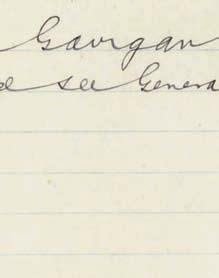 Gavigan
see Genera